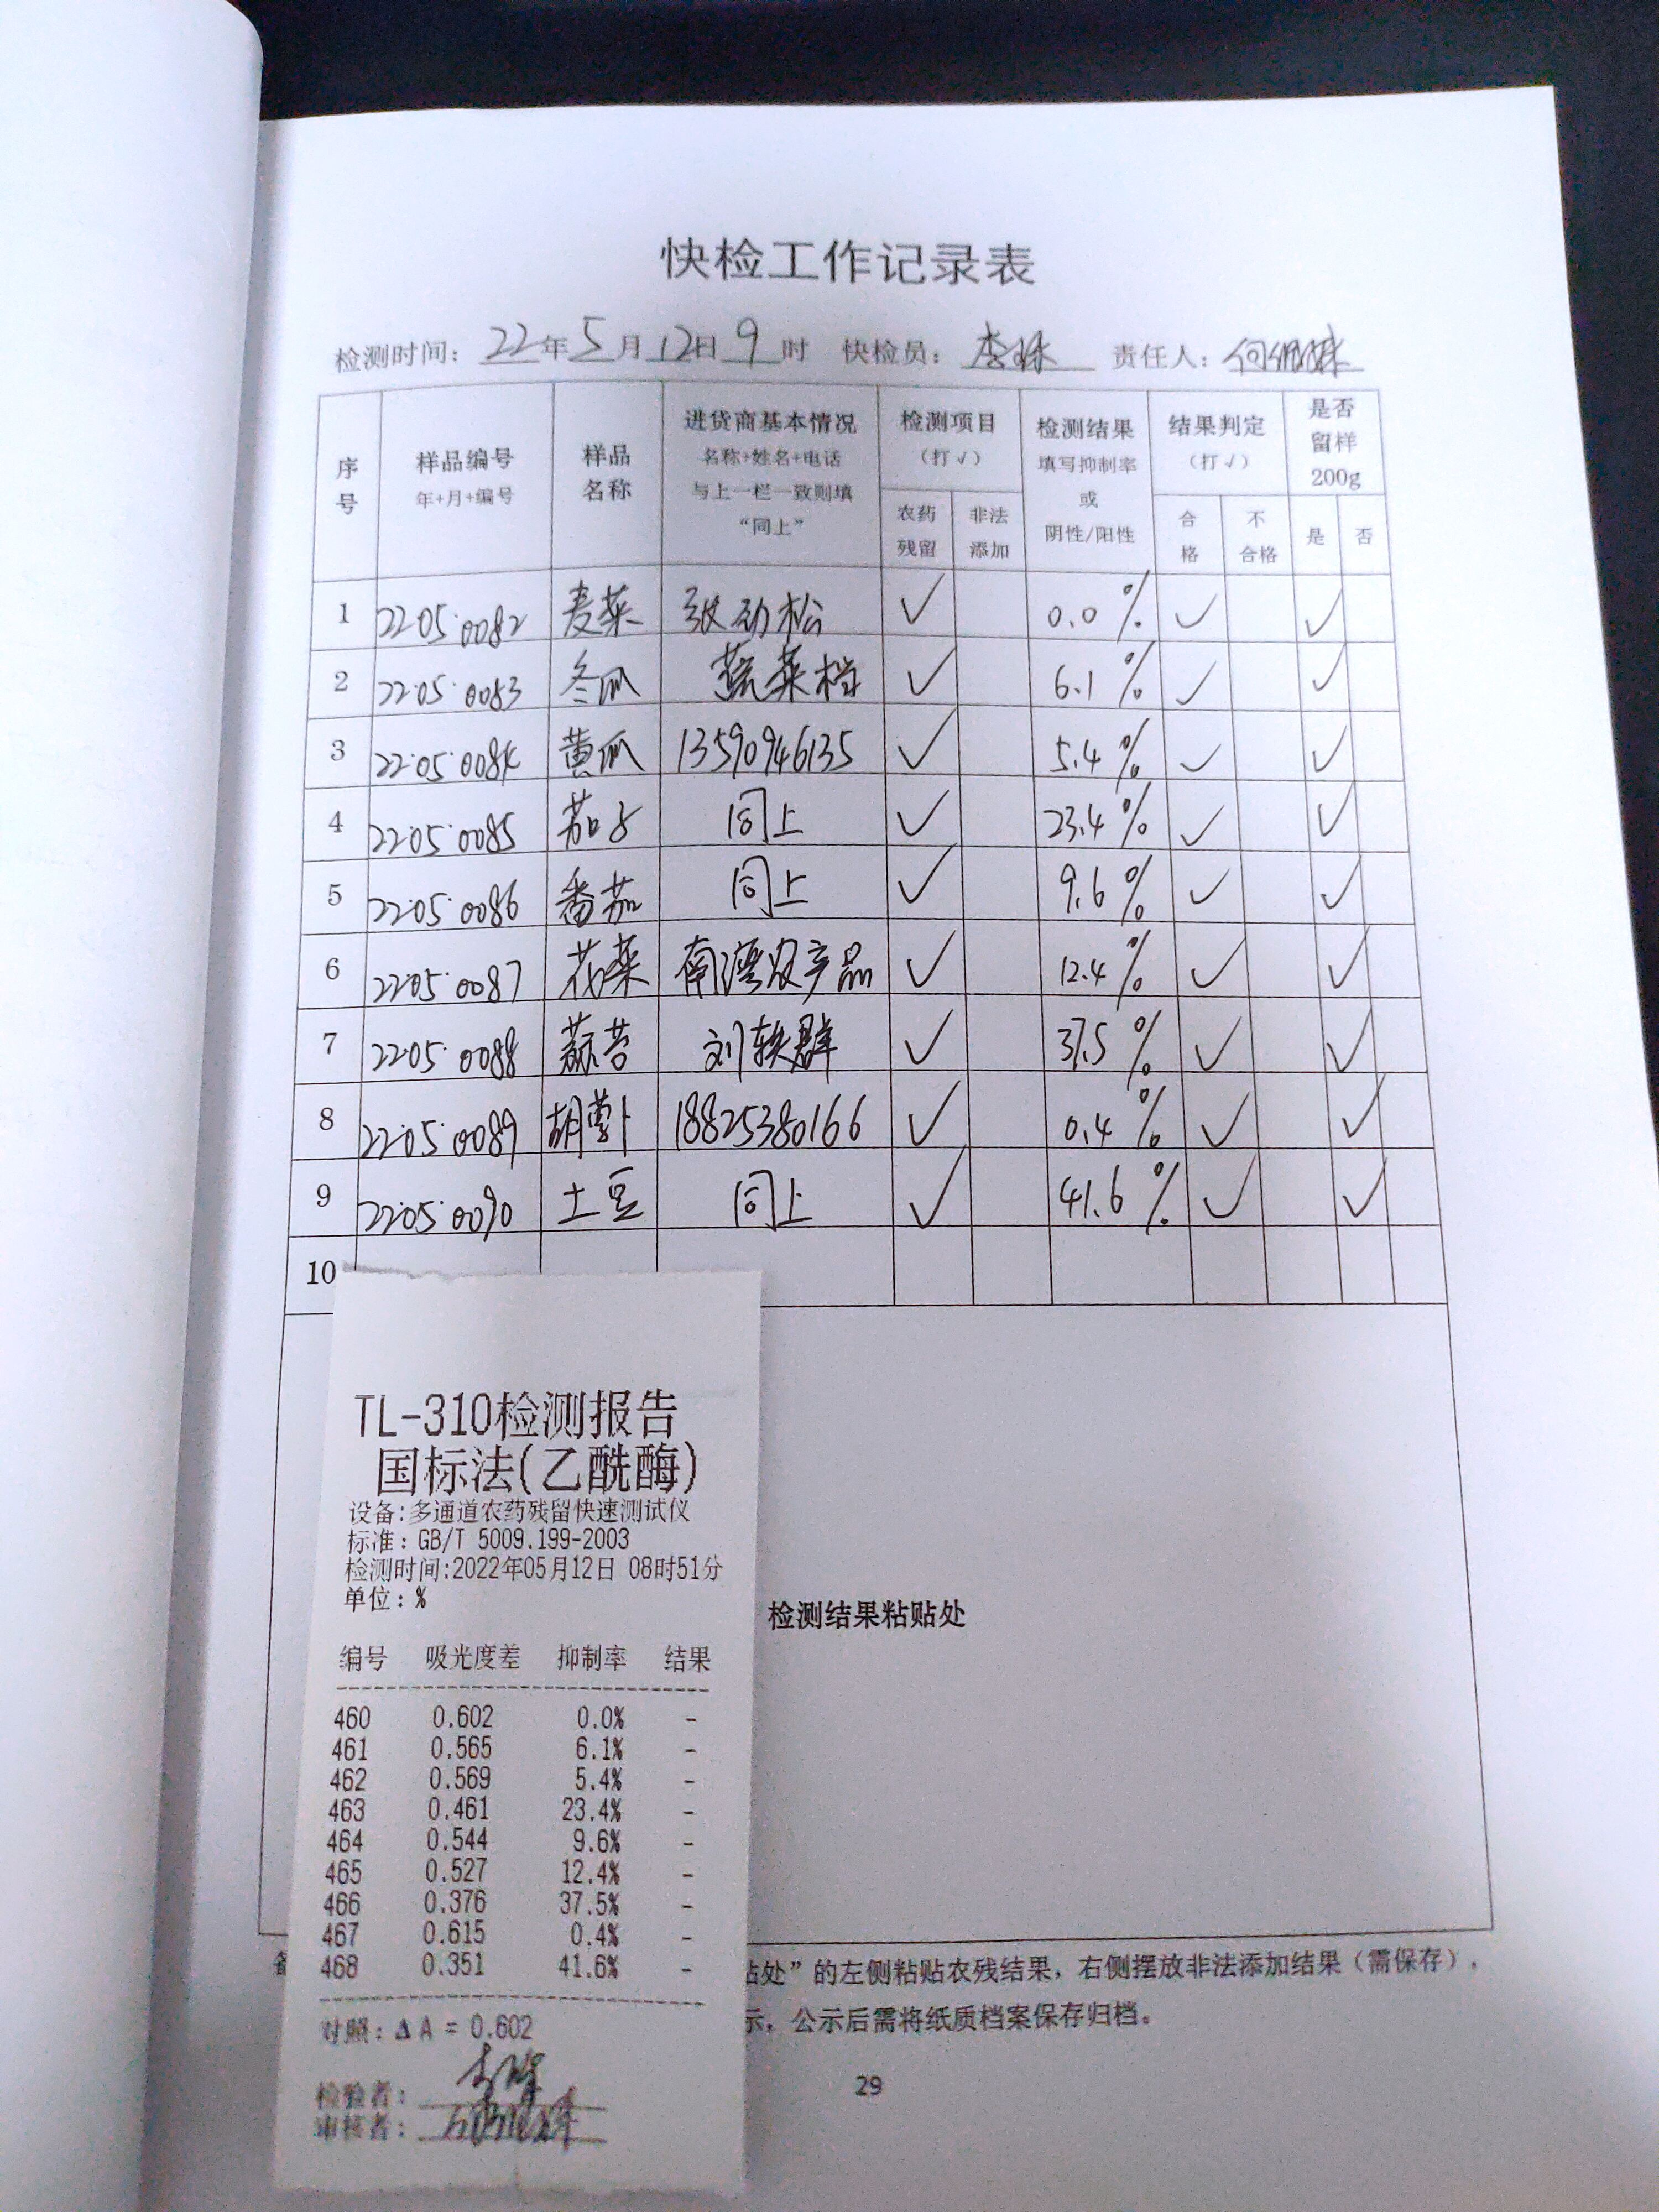 快检工作记录表
检测时间：22年5月12日9时 快检员：李 责任人：何
序号 样品编号 年+月+编号 样品名称 进货商基本情况 名称+姓名+电话 与上一栏一致则填“同上” 检测项目（打√） 农药残留 非法添加 检测结果 填写抑制率或阴性/阳性 结果判定（打√） 合格 不合格 是否留样200g 是 否
1 22·05·0082 麦菜 张劲松 ✓ 0.0% ✓ ✓
2 22·05·0083 冬瓜 蔬菜档 ✓ 6.1% ✓ ✓
3 22·05·0084 黄瓜 13590946135 ✓ 5.4% ✓ ✓
4 22·05·0085 茄子 同上 ✓ 23.4% ✓ ✓
5 22·05·0086 番茄 同上 ✓ 9.6% ✓ ✓
6 22·05·0087 花菜 南湾农产品 ✓ 12.4% ✓ ✓
7 22·05·0088 蒜苔 刘轶群 ✓ 37.5% ✓ ✓
8 22·05·0089 胡萝卜 18825380166 ✓ 0.4% ✓ ✓
9 22·05·0090 土豆 同上 ✓ 41.6% ✓ ✓
10
TL-310检测报告
国标法(乙酰酶)
设备:多通道农药残留快速测试仪
标准：GB/T 5009.199-2003
检测时间:2022年05月12日 08时51分
单位：%
检测结果粘贴处
编号 吸光度差 抑制率 结果
460 0.602 0.0% -
461 0.565 6.1% -
462 0.569 5.4% -
463 0.461 23.4% -
464 0.544 9.6% -
465 0.527 12.4% -
466 0.376 37.5% -
467 0.615 0.4% -
468 0.351 41.6% -
处”的左侧粘贴农残结果，右侧摆放非法添加结果（需保存），
示，公示后需将纸质档案保存归档。
对照：ΔA = 0.602
检验者：李
审核者：
29